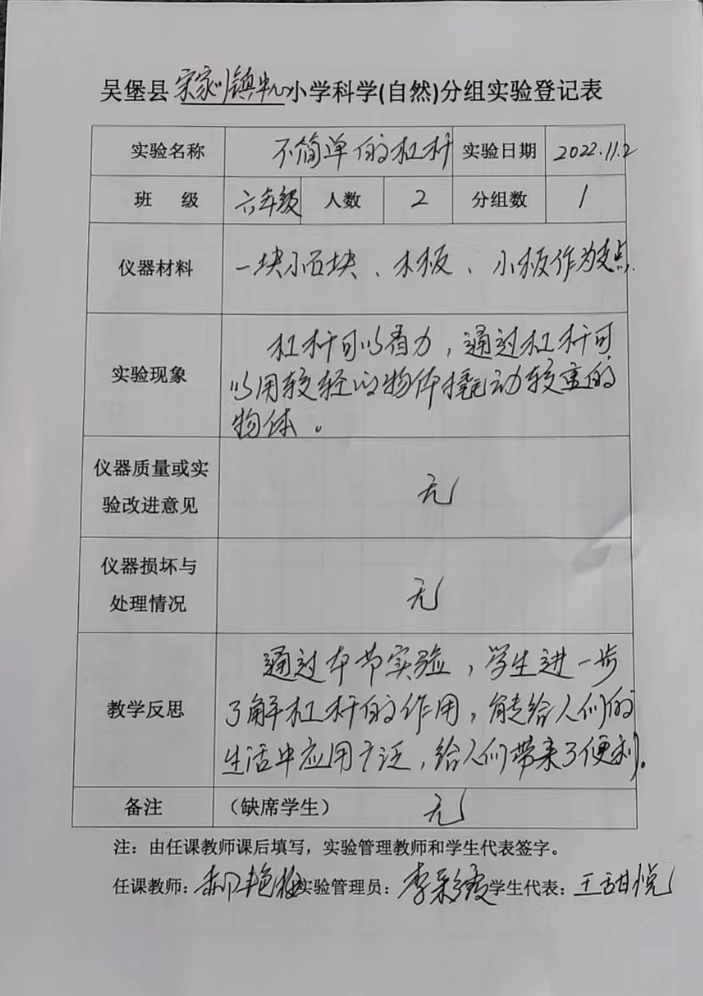 吴堡县宋家川镇中心小学科学(自然)分组实验登记表
实验名称 不简单的杠杆 实验日期 2022.11.2
班 级 六年级 人数 2 分组数 1
仪器材料 一块小石块、木板、小板作为支点.
实验现象 杠杆可以省力,通过杠杆可
以用较轻的物体撬动较重的
物体。
仪器质量或实
验改进意见 无
仪器损坏与
处理情况 无
教学反思 通过本节实验,学生进一步
了解杠杆的作用,能给人们的
生活中应用广泛,给人们带来了便利。
备注 (缺席学生) 无
注:由任课教师课后填写,实验管理教师和学生代表签字。
任课教师:郝艳梅 实验管理员:李彩霞 学生代表:王甜悦